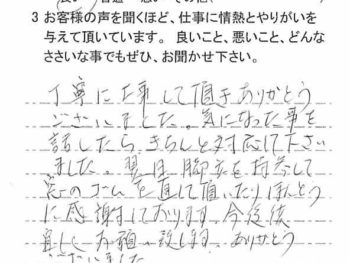 3 お客様の声を聞くほど、仕事に情熱とやりがいを
与えて頂いています。 良いこと、悪いこと、どんな
ささいな事でもぜひ、お聞かせ下さい。
丁寧に仕事して頂きありがとう
ございました。気になった事を
話したら、きちんと対応して下さい
ました。翌日 脚立を持参して
窓のゴムを直して頂いたりほんとう
に感謝しております。今後
お願い致します。ありがとう
ございました